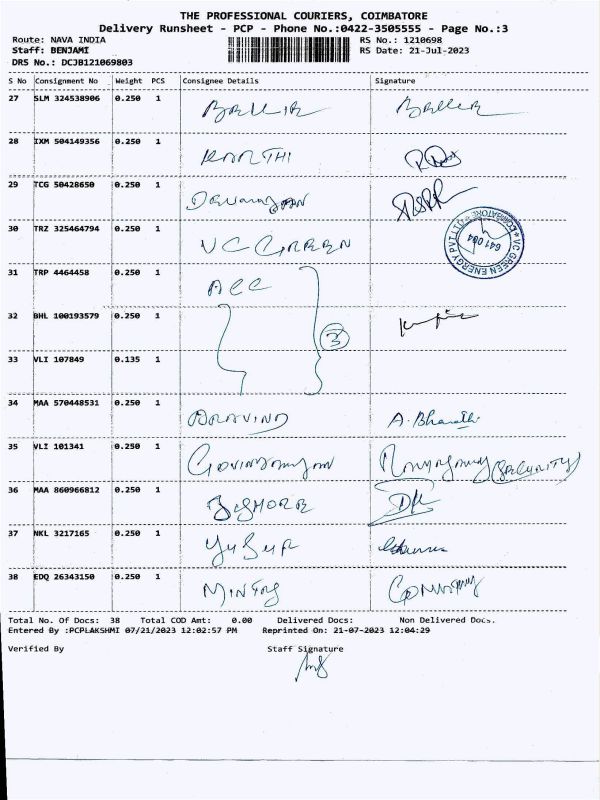 THE PROFESSIONAL COURIERS, COIMBATORE
Delivery Runsheet - PCP - Phone No.:0422-3505555 - Page No.:3
Route: NAVA INDIA RS No.: 1210698
Staff: BENJAMI RS Date: 21-Jul-2023
DRS No.: DCJB121069803
S No Consignment No Weight PCS Consignee Details Signature
27 SLM 324538906 0.250 1
28 IXM 504149356 0.250 1 KARTHI
29 TCG 50428650 0.250 1
30 TRZ 325464794 0.250 1 VC GREEN
VC GREEN ENERGY PVT LTD COIMBATORE 641 004
31 TRP 4464458 0.250 1 ACC
32 BHL 100193579 0.250 1
3
33 VLI 107849 0.135 1
34 MAA 570448531 0.250 1 ARAVIND A. Bharathi
35 VLI 101341 0.250 1 SECURITY
36 MAA 860966812 0.250 1
37 NKL 3217165 0.250 1 YUSUF
38 EDQ 26343150 0.250 1
Total No. Of Docs: 38 Total COD Amt: 0.00 Delivered Docs: Non Delivered Docs.
Entered By :PCPLAKSHMI 07/21/2023 12:02:57 PM Reprinted On: 21-07-2023 12:04:29
Verified By Staff Signature